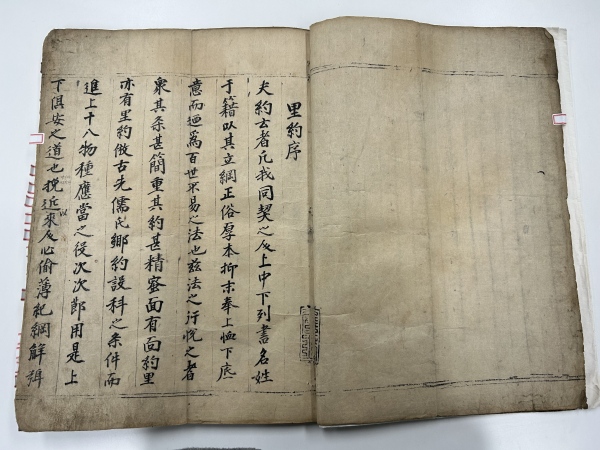 里約序
夫約玄者凡我同契之友上中下列書名姓
于籍以其立綱正俗厚本抑末奉上恤下底
意而廼爲百世不易之法也玆法之行悅之者
衆其条甚簡重其約甚精密面有面約里
亦有里約倣古先儒氏鄕約設科之条件而
進上十八物種應當之役次次節用是上
下俱安之道也挽近以來人心偸薄紀綱解弛